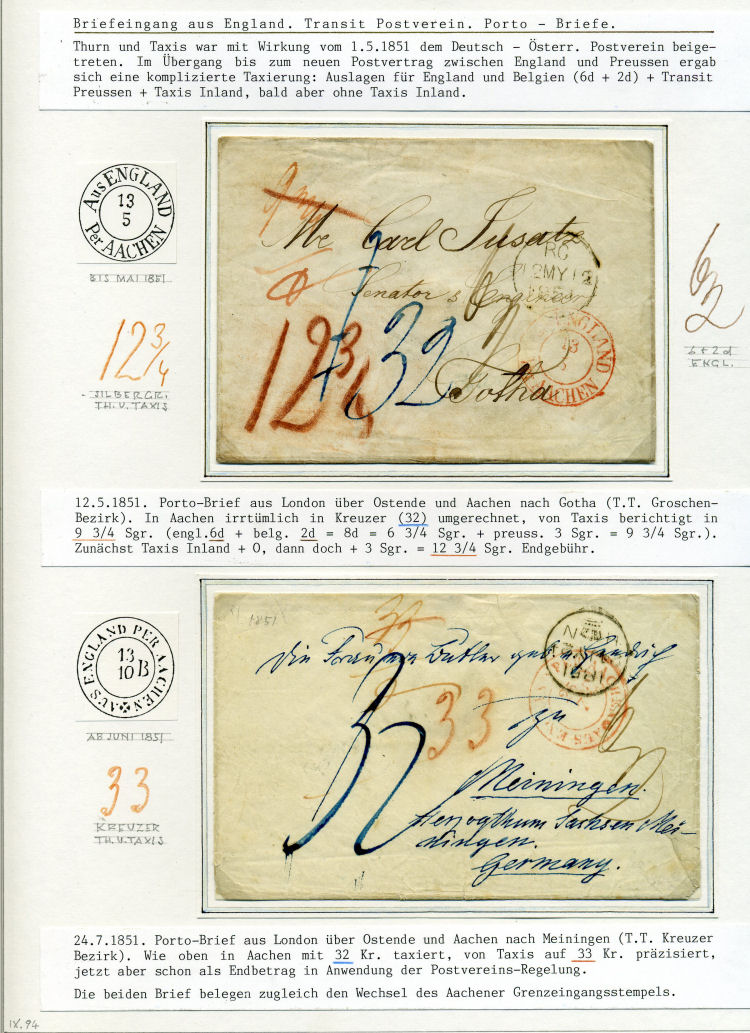 Briefeingang aus England. Transit Postverein. Porto - Briefe.
Thurn und Taxis war mit Wirkung vom 1.5.1851 dem Deutsch - Österr. Postverein beige-
treten. Im Übergang bis zum neuen Postvertrag zwischen England und Preussen ergab
sich eine komplizierte Taxierung: Auslagen für England und Belgien (6d + 2d) + Transit
Preussen + Taxis Inland, bald aber ohne Taxis Inland.
Aus ENGLAND
13
5
Per AACHEN
BIS MAI 1851
12 3/4
SILBERGR.
TH. V. TAXIS
Mr Carl
Senator & Engineer
Gotha
RG
12MY12
1851
ENGLAND
13
AACHEN
12 3/4
32
6/2
6+2d
ENGL.
12.5.1851. Porto-Brief aus London über Ostende und Aachen nach Gotha (T.T. Groschen-
Bezirk). In Aachen irrtümlich in Kreuzer (32) umgerechnet, von Taxis berichtigt in
9 3/4 Sgr. (engl.6d + belg. 2d = 8d = 6 3/4 Sgr. + preuss. 3 Sgr. = 9 3/4 Sgr.).
Zunächst Taxis Inland + 0, dann doch + 3 Sgr. = 12 3/4 Sgr. Endgebühr.
AUS ENGLAND PER AACHEN
13
10 B
AB JUNI 1851
33
KREUZER
TH. V. TAXIS
1851
die Frau
zu
Meiningen.
Herzogthum Sachsen Mei-
ningen.
Germany.
32
33
1851
AUS EN
24.7.1851. Porto-Brief aus London über Ostende und Aachen nach Meiningen (T.T. Kreuzer
Bezirk). Wie oben in Aachen mit 32 Kr. taxiert, von Taxis auf 33 Kr. präzisiert,
jetzt aber schon als Endbetrag in Anwendung der Postvereins-Regelung.
Die beiden Brief belegen zugleich den Wechsel des Aachener Grenzeingangsstempels.
IX. 94